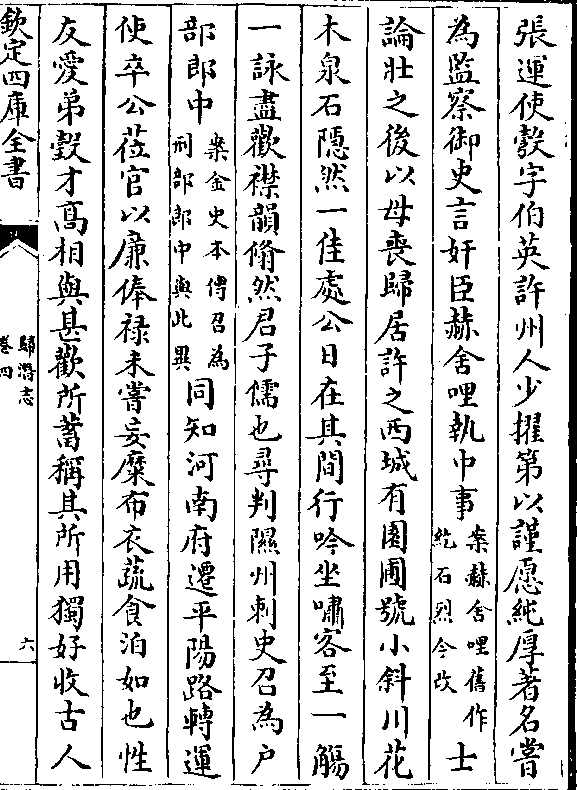 張運使瑴字伯英許州人少擢第以謹愿純厚著名嘗
為監察御史言奸臣赫舍哩執中事案赫舍哩舊作紇石烈今改士
論壯之後以母喪歸居許之西城有園圃號小斜川花
木泉石隱然一佳處公日在其間行吟坐嘯客至一觴
一詠盡歡襟韻翛然君子儒也尋判隰州刺史召為户
部郎中案金史本傳召為刑部郎中與此異同知河南府遷平陽路轉運
使卒公莅官以廉俸禄未嘗妄糜布衣蔬食泊如也性
友愛弟瑴才髙相與甚歡所蓄稱其所用獨好收古人
欽定四庫全書
歸潛志
卷四
六